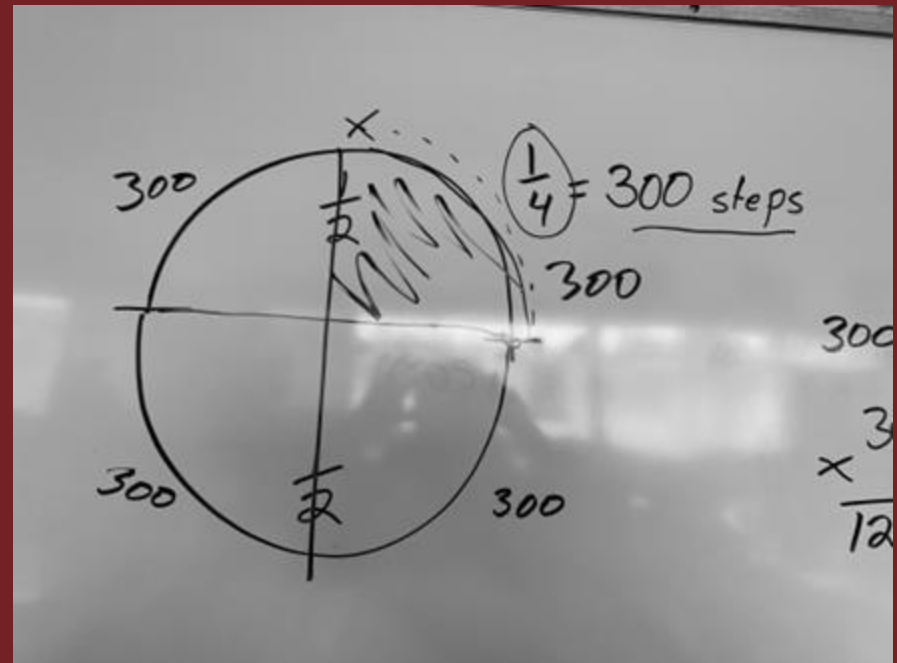 x
300
1/2
1/4 = 300 steps
300
300
1/2
300
300
x 3
12